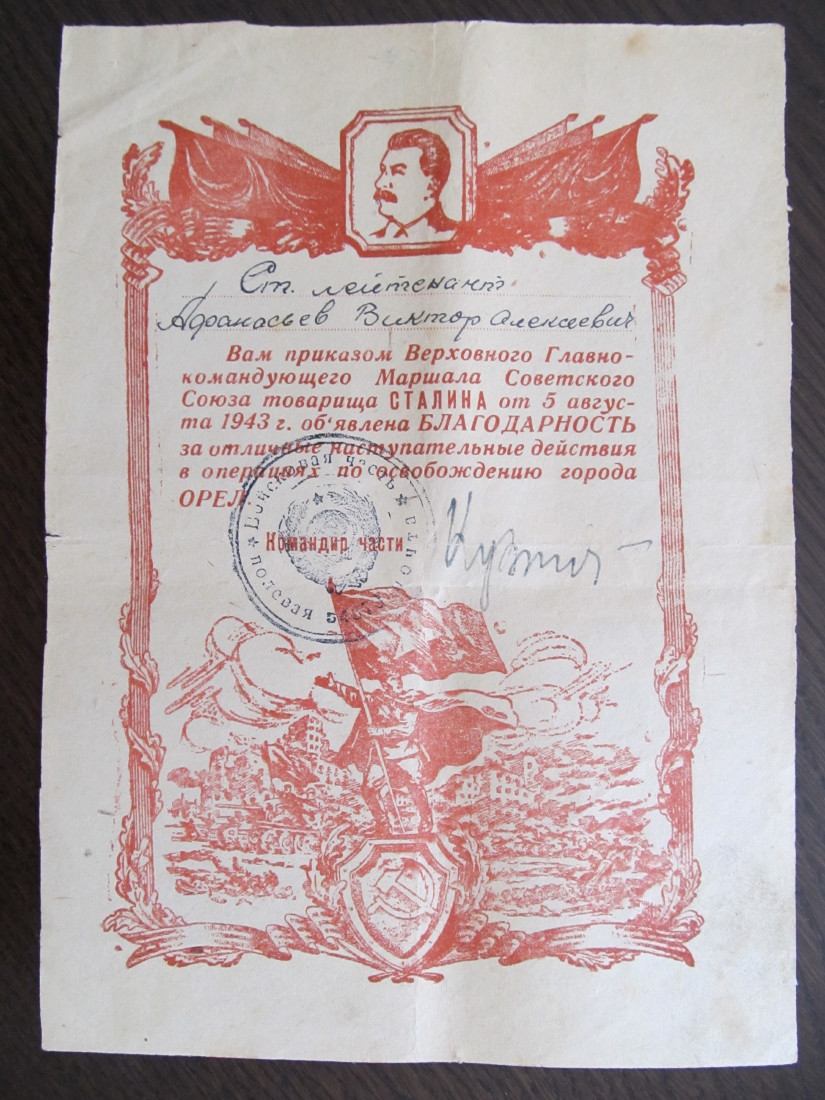 Ст. лейтенант
Афанасьев Виктор Алексеевич
Вам приказом Верховного Главно-
командующего Маршала Советского
Союза товарища СТАЛИНА от 5 авгус-
та 1943 г. об'явлена БЛАГОДАРНОСТЬ
за отличные наступательные действия
в операциях по освобождению города
ОРЕЛ
Войсковая часть
полевая почта
Командир части